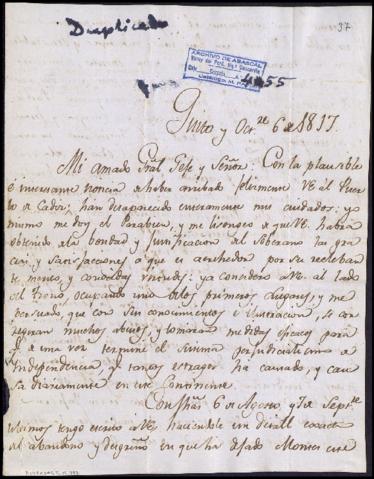 Duplicado
37
ARCHIVO DE ABASCAL
4055
Quito y Oct.re 6 de 1817.
Mi amado Gral Gefe y Señor. Con la plausible
é interesante noticia de haver arribado felizmente VE al Puer
to de Cadiz, han desaparecido enteramente mis cuidados: yo
mismo me doy el Parabien, y me lisongeo de que VE. habrá
obtenido de la bondad y Justificacion del Soberano las gra
cias y satisfacciones a que es acrehedor por su
merito, y virtudes: ya considero a VE. al lado
del Trono, ocupando uno de los primeros Lugares, y me
persuado, que con sus conocimientos e Ilustracion, se cor
regiran muchos abusos, y tomaran medidas eficaces para
q.e de una vez termine el sistema perjudicialisimo de
Independencia, q.e tantos estragos ha causado, y cau
sa diariamente en este Continente.
Con fhas 6 de Agosto, y 7 de Sept.re
ultimos tengo escrito a VE. haciendole un detall exacto
del abandono y desgreño en que ha dejado Montes este